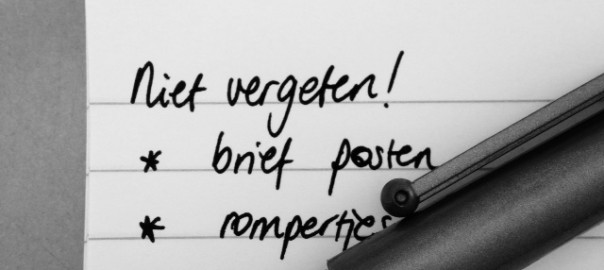 Niet vergeten!
* brief posten
* rompertjes